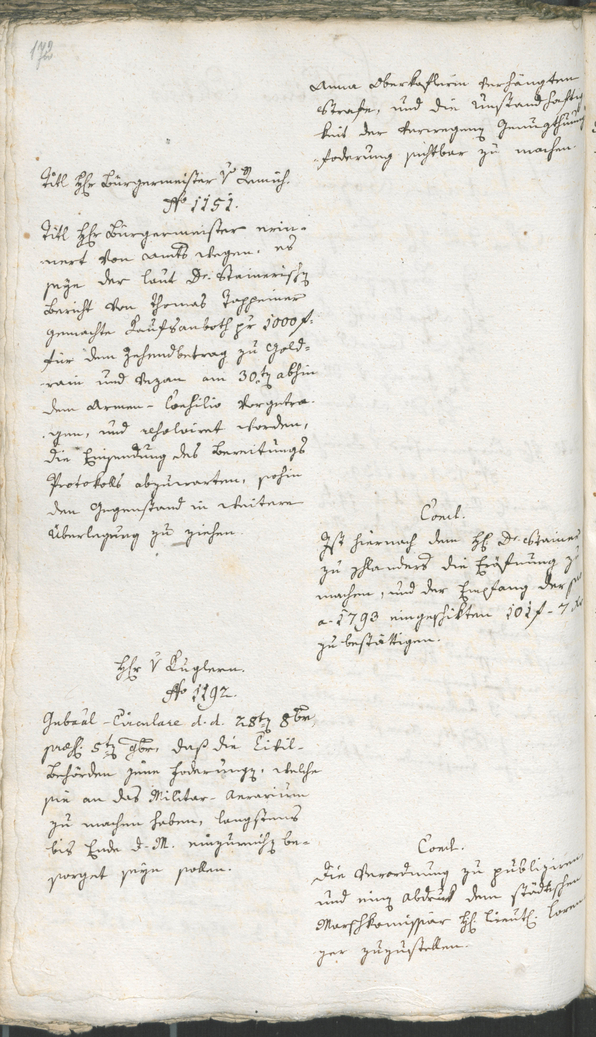 Anna Oberkoflerin verhängten
Strafe, und die Umstandhaftig
keit der verwegenen Genugthuung
foderung sichtbar zu machen.
Titl Hr Bürgermeister v
No 1151.
Titl Hr Bürgermeister erin-
nert von Amts wegen, es
seye der laut Dr. Steinerischen
Bericht von Thomas Tappeiner
gemachte Kaufsanboth pr 1000 f:
für den Zehendbetrag zu Gold-
rain und Vezan am 30ten abhin
dem Armen-Consilio vorgetra-
gen, und resolviret worden,
die Einsendung des Bereitungs
Protokolls abzuwarten, sohin
den Gegenstand in weitere
Überlegung zu ziehen.
Concl.
Ist hiernach dem H: Dr. Steiner
zu Schlanders die Eröfnung zu
machen, und der Empfang der pro
a. 1793 eingeschikten 101 f - 7
zu bestättigen.
Hr v Kuglern.
No 1192.
Gubäal-Circulare d. d. 28ten 8ber,
praes: 5ten 9ber, daß die Civil-
Behörden jene Foderungen, welche
sie an das Militar-Aerarium
zu machen haben, längstens
bis Ende d. M. einzureichen be-
sorget seyn sollen.
Concl.
Die Verordnung zu publiziren,
und einen Abdruk dem städtischen
Marschkomissär H: Lieut: Loren
ger zuzustellen.